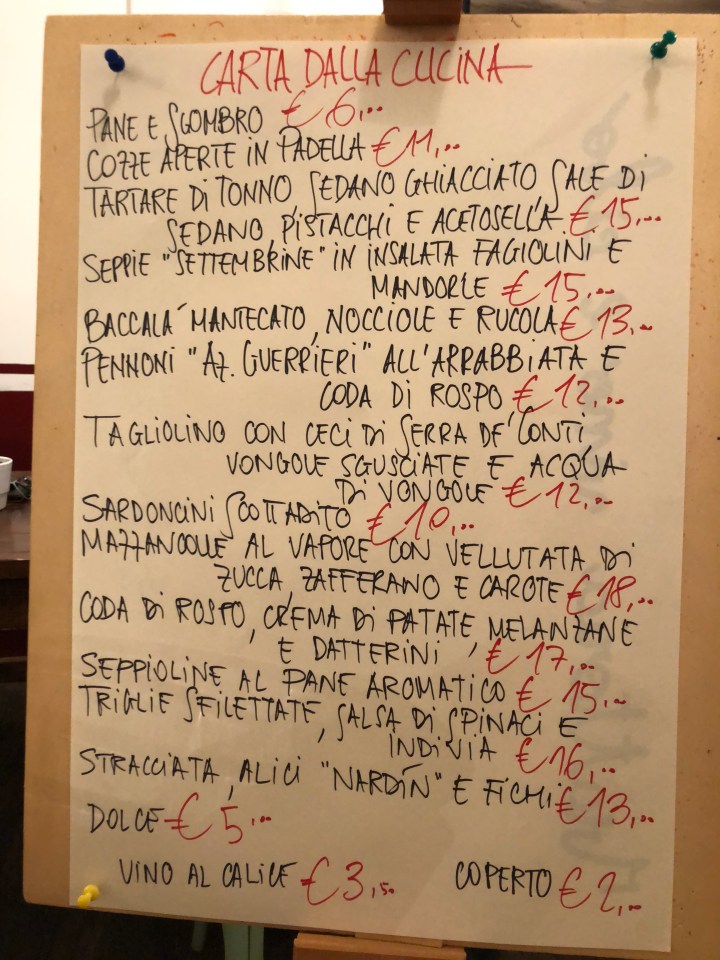 CARTA DALLA CUCINA
PANE E SGOMBRO €6,00
COZZE APERTE IN PADELLA €11,00
TARTARE DI TONNO, SEDANO GHIACCIATO SALE DI
SEDANO, PISTACCHI E ACETOSELLA €15,00
SEPPIE "SETTEMBRINE" IN INSALATA FAGIOLINI E
MANDORLE €15,00
BACCALA' MANTECATO, NOCCIOLE E RUCOLA €13,00
PENNONI "AZ. GUERRIERI" ALL'ARRABBIATA E
CODA DI ROSPO €12,00
TAGLIOLINO CON CECI DI SERRA DE' CONTI,
VONGOLE SGUSCIATE E ACQUA
DI VONGOLE €12,00
SARDONCINI SCOTTADITO €10,00
MAZZANCOLLE AL VAPORE CON VELLUTATA DI
ZUCCA, ZAFFERANO E CAROTE €18,00
CODA DI ROSPO, CREMA DI PATATE, MELANZANE
E DATTERINI, €17,00
SEPPIOLINE AL PANE AROMATICO €15,00
TRIGLIE SFILETTATE, SALSA DI SPINACI E
INDIVIA €16,00
STRACCIATA, ALICI "NARDÍN" E FICHI €13,00
DOLCE €5,00
VINO AL CALICE €3,50 COPERTO €2,00